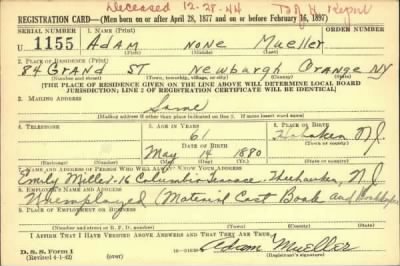 Deceased 12-28-44
REGISTRATION CARD—(Men born on or after April 28, 1877 and on or before February 16, 1897)
SERIAL NUMBER 1. NAME (Print) ORDER NUMBER
U 1155 Adam none Mueller
(First) (Middle) (Last)
2. PLACE OF RESIDENCE (Print)
84 Grand ST Newburgh Orange NY
(Number and street) (Town, township, village, or city) (County) (State)
[THE PLACE OF RESIDENCE GIVEN ON THE LINE ABOVE WILL DETERMINE LOCAL BOARD
JURISDICTION; LINE 2 OF REGISTRATION CERTIFICATE WILL BE IDENTICAL]
3. MAILING ADDRESS
Same
[Mailing address if other than place indicated on line 2. If same insert word same]
4. TELEPHONE 5. AGE IN YEARS 6. PLACE OF BIRTH
61 Hoboken
DATE OF BIRTH (Town or county)
May 14 1880 N.J.
(Exchange) (Number) (Mo.) (Day) (Yr.) (State or country)
7. NAME AND ADDRESS OF PERSON WHO WILL ALWAYS KNOW YOUR ADDRESS
Emily Miller 16 Columbia Terrace Weehawken, N.J.
8. EMPLOYER'S NAME AND ADDRESS
Unemployed (Material Cost Book and
9. PLACE OF EMPLOYMENT OR BUSINESS
(Number and street or R. F. D. number) (Town) (County) (State)
I AFFIRM THAT I HAVE VERIFIED ABOVE ANSWERS AND THAT THEY ARE TRUE.
D. S. S. Form 1
(Revised 4-1-42) (over) Adam Mueller
(Registrant's signature)